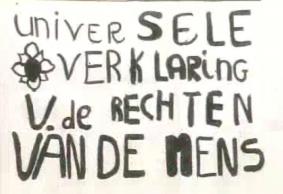 univer SELE
VERKLARiNG
V. de RECHTEN
VAN DE MENS